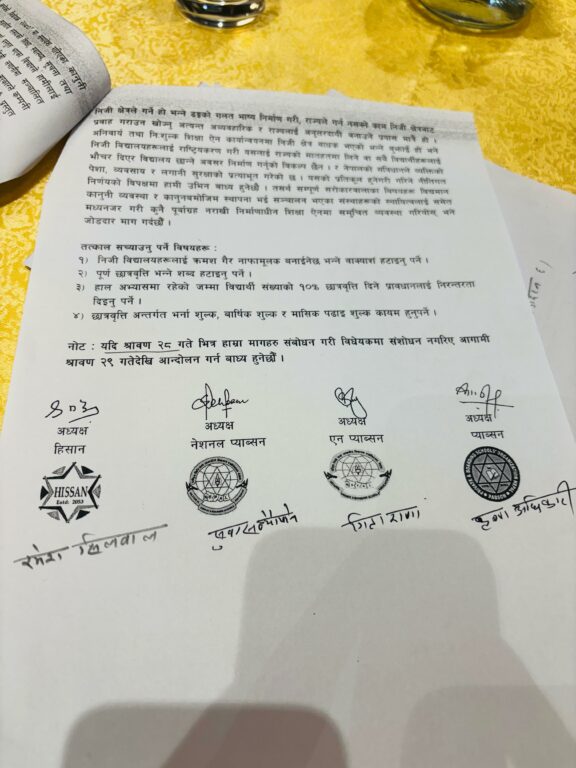 निजी क्षेत्रले गर्ने हो भन्ने ढङ्गको गलत भाष्य निर्माण गरी, राज्यले गर्नु नसक्ने काम निजी क्षेत्रबाट
प्रवाह गराउन खोज्नु अत्यन्त अव्यवहारिक र राज्यलाई अनुत्तरदायी बनाउने प्रयास मात्रै हो ।
अनिवार्य तथा नि:शुल्क शिक्षा ऐन कार्यान्वयनमा निजी क्षेत्र बाधक भएको भन्ने बुझाई हो भने
निजी विद्यालयहरूलाई राष्ट्रियकरण गरी यसलाई राज्यको मातहतमा लिने वा सबै विद्यार्थीहरूलाई
भौचर दिएर विद्यालय छान्ने अवसर निर्माण गर्नुको विकल्प छैन । र नेपालको संविधानले व्यक्तिको
पेशा, व्यवसाय र लगानी सुरक्षाको प्रत्याभूत गरेको छ । यसको प्रतिकूल हुनेगरी गरिने नीतिगत
निर्णयको विपक्षमा हामी उभिन बाध्य हुनेछौं । तसर्थ सम्पूर्ण सरोकारवालाका विषयहरू विद्यमान
कानूनी व्यवस्था र कानूनबमोजिम स्थापना भई सञ्चालन भएका संस्थाहरूको स्थायित्वलाई समेत
मध्यनजर गरी कुनै पूर्वाग्रह नराखी निर्माणाधीन शिक्षा ऐनमा समुचित व्यवस्था गरियोस् भने
जोडदार माग गर्दछौं ।
तत्काल सच्याउनु पर्ने विषयहरू :
१) निजी विद्यालयहरूलाई क्रमश गैर नाफामूलक बनाईनेछ भन्ने वाक्यांश हटाइनु पर्ने ।
२) पूर्ण छात्रवृत्ति भन्ने शब्द हटाइनु पर्ने ।
३) हाल अभ्यासमा रहेको जम्मा विद्यार्थी संख्याको १०% छात्रवृत्ति दिने प्रावधानलाई निरन्तरता
दिइनु पर्ने ।
४) छात्रवृत्ति अन्तर्गत भर्ना शुल्क, वार्षिक शुल्क र मासिक पढाइ शुल्क कायम हुनुपर्ने ।
नोट : यदि श्रावण २८ गते भित्र हाम्रा मागहरु संबोधन गरी विधेयकमा संशोधन नगरिए आगामी
श्रावण २९ गतेदेखि आन्दोलन गर्न बाध्य हुनेछौं ।
अध्यक्ष अध्यक्ष अध्यक्ष अध्यक्ष
हिसान नेशनल प्याब्सन एन प्याब्सन प्याब्सन
HISSAN
Estd: 2053
रमेश सिलवाल सुवास न्यौपाने गिता राणा कृष्ण अधिकारी